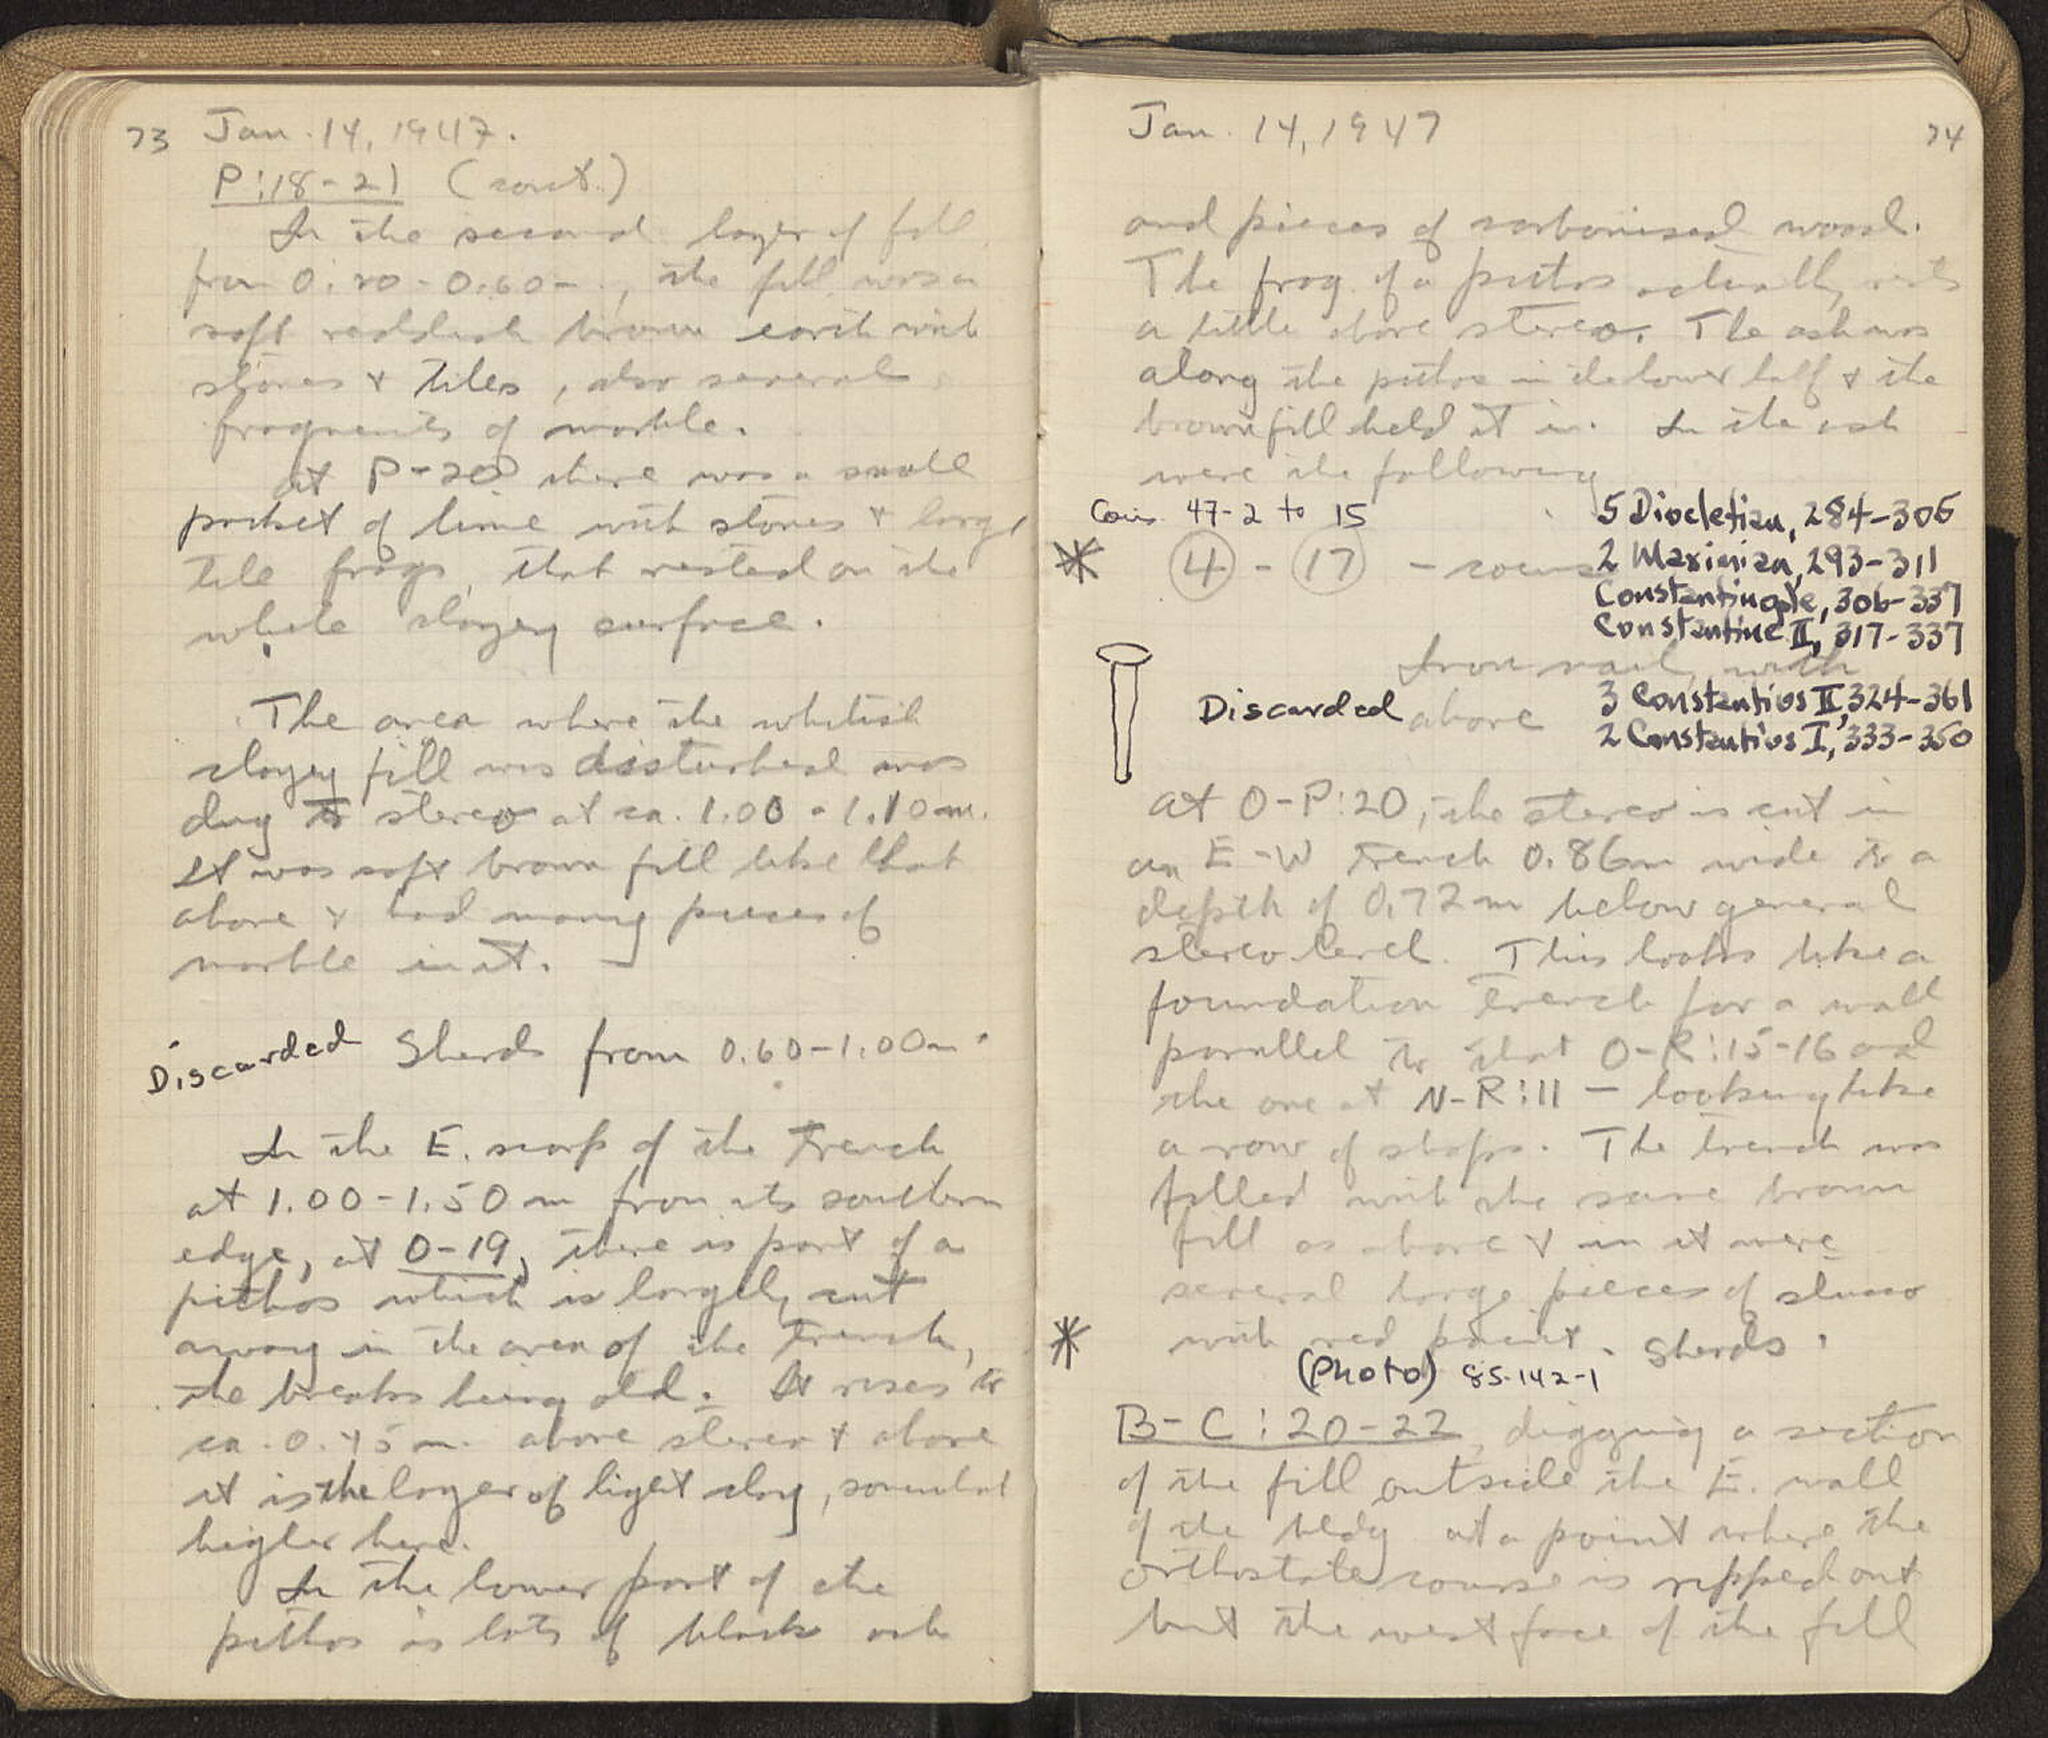 73 Jan. 14, 1947.
P:18-21 (cont.)
In the second layer of fill
from 0.20-0.60m., the fill was a
soft reddish brown earth with
stones + tiles, also several
fragments of marble.
At P-20 there was a small
pocket of lime with stones + large
tile frags. that rested on the
white clayey surface.
The area where the whitish
clayey fill was disturbed was
dug to stereo at ca. 1.00-1.10m.
It was soft brown fill like that
above + had many pieces of
marble in it.
Discarded Sherds from 0.60-1.00m.
In the E. scarp of the trench
at 1.00-1.50m from its southern
edge, at O-19, there is part of a
pithos which is largely cut
away in the area of the trench,
the breaks being old. It rises to
ca. 0.45m. above stereo + above
it is the layer of light clay, somewhat
higher here.
In the lower part of the
pithos is lots of black ash
Jan. 14, 1947 74
and pieces of carbonised wood.
The frag. of a pithos actually rests
a little above stereo. The ash was
along the pithos in the lower half + the
brown fill held it in. In the ash
were the following
Coins 47-2 to 15
5 Diocletian, 284-305
* 4 - 17 - coins
2 Maximian, 293-311
Constantinople, 306-337
Constantine II, 317-337
Iron nail, with
Discarded above
3 Constantius II, 324-361
2 Constantius I, 333-350
At O-P:20, the stereo is cut in
an E-W trench 0.86m wide to a
depth of 0.72m below general
stereo level. This looks like a
foundation trench for a wall
parallel to that O-R:15-16 and
the one at N-R:11 - looking like
a row of shops. The trench was
filled with the same brown
fill as above + in it were
several large pieces of stucco
* with red paint. Sherds.
(Photo) 85-142-1
B-C:20-22, digging a section
of the fill outside the E. wall
of the bldg at a point where the
orthostate course is ripped out
but the west face of the fill